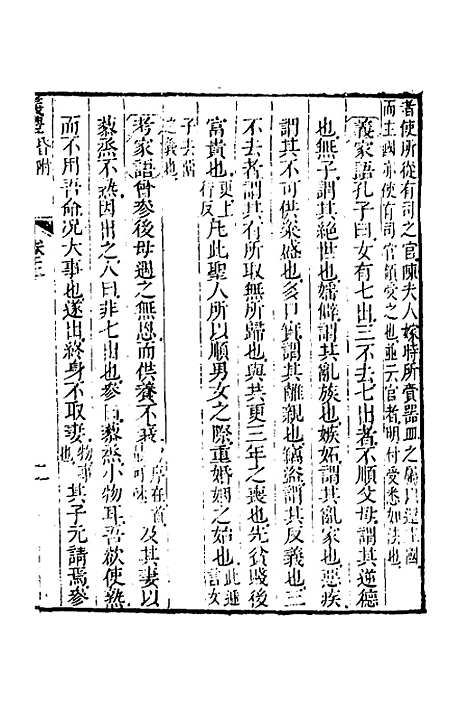 者使所從有司之官陳夫人嫁時所賫器皿之屬以還主國
而主國亦使有司官領受之也並云官者明付受悉如法也
義家語孔子曰女有七出三不去七出者不順父母謂其逆德
也無子謂其絕世也婬僻謂其亂族也嫉妬謂其亂家也惡疾
謂其不可供粢盛也多口實謂其離親也竊盜謂其反義也三
不去者謂其有所取無所歸也與共更三年之喪也先貧賤後
富貴也更上行反凡此聖人所以順男女之際重婚姻之始也此逓言女
子去當之義也
考家語曾參後母遇之無恩而供養不衰及其妻以
藜烝不熟因出之人曰非七出也參曰藜烝小物耳吾欲使熟
而不用吾命况大事也遂出終身不取妻物事也其子元請焉參